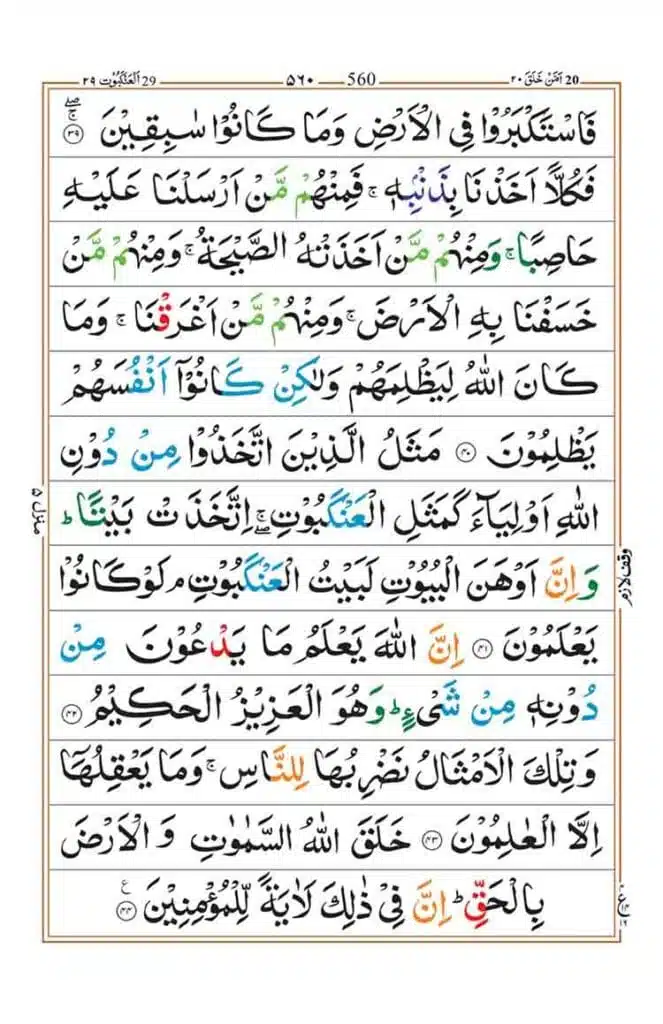 20 اَمَّنْ خَلَقَ ٢٠ 560 ٥٦٠ 29 اَلْعَنْكَبُوْت ٢٩
فَاسْتَكْبَرُوْا فِی الْاَرْضِ وَمَا كَانُوْا سٰبِقِیْنَ ۚۖ ﴿۳۹﴾
فَكُلًّا اَخَذْنَا بِذَنْۢبِهٖ ۚ فَمِنْهُمْ مَّنْ اَرْسَلْنَا عَلَیْهِ
حَاصِبًا ۚ وَمِنْهُمْ مَّنْ اَخَذَتْهُ الصَّیْحَةُ ۚ وَمِنْهُمْ مَّنْ
خَسَفْنَا بِهِ الْاَرْضَ ۚ وَمِنْهُمْ مَّنْ اَغْرَقْنَا ۚ وَمَا
كَانَ اللّٰهُ لِیَظْلِمَهُمْ وَلٰكِنْ كَانُوْۤا اَنْفُسَهُمْ
یَظْلِمُوْنَ ﴿۴۰﴾ مَثَلُ الَّذِیْنَ اتَّخَذُوْا مِنْ دُوْنِ
اللّٰهِ اَوْلِیَآءَ كَمَثَلِ الْعَنْكَبُوْتِ ۚۖ اِتَّخَذَتْ بَیْتًا ؕ
وَ اِنَّ اَوْهَنَ الْبُیُوْتِ لَبَیْتُ الْعَنْكَبُوْتِ ۘ لَوْ كَانُوْا
یَعْلَمُوْنَ ﴿۴۱﴾ اِنَّ اللّٰهَ یَعْلَمُ مَا یَدْعُوْنَ مِنْ
دُوْنِهٖ مِنْ شَیْءٍ ؕ وَهُوَ الْعَزِیْزُ الْحَكِیْمُ ﴿۴۲﴾
وَتِلْكَ الْاَمْثَالُ نَضْرِبُهَا لِلنَّاسِ ۚ وَمَا یَعْقِلُهَاۤ
اِلَّا الْعٰلِمُوْنَ ﴿۴۳﴾ خَلَقَ اللّٰهُ السَّمٰوٰتِ وَ الْاَرْضَ
بِالْحَقِّ ؕ اِنَّ فِیْ ذٰلِكَ لَاٰیَةً لِّلْمُؤْمِنِیْنَ ﴿۴۴﴾ ع
منزل ۵
وقف لازم